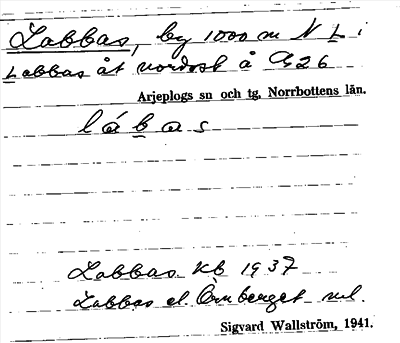 Labbas, by 1000 m N L. i
Labbas åt nordost å G26
Arjeplogs sn och tg, Norrbottens län.
lábas
Labbas Kb 1937
Labbas el. Örnberget
Sigvard Wallström, 1941.